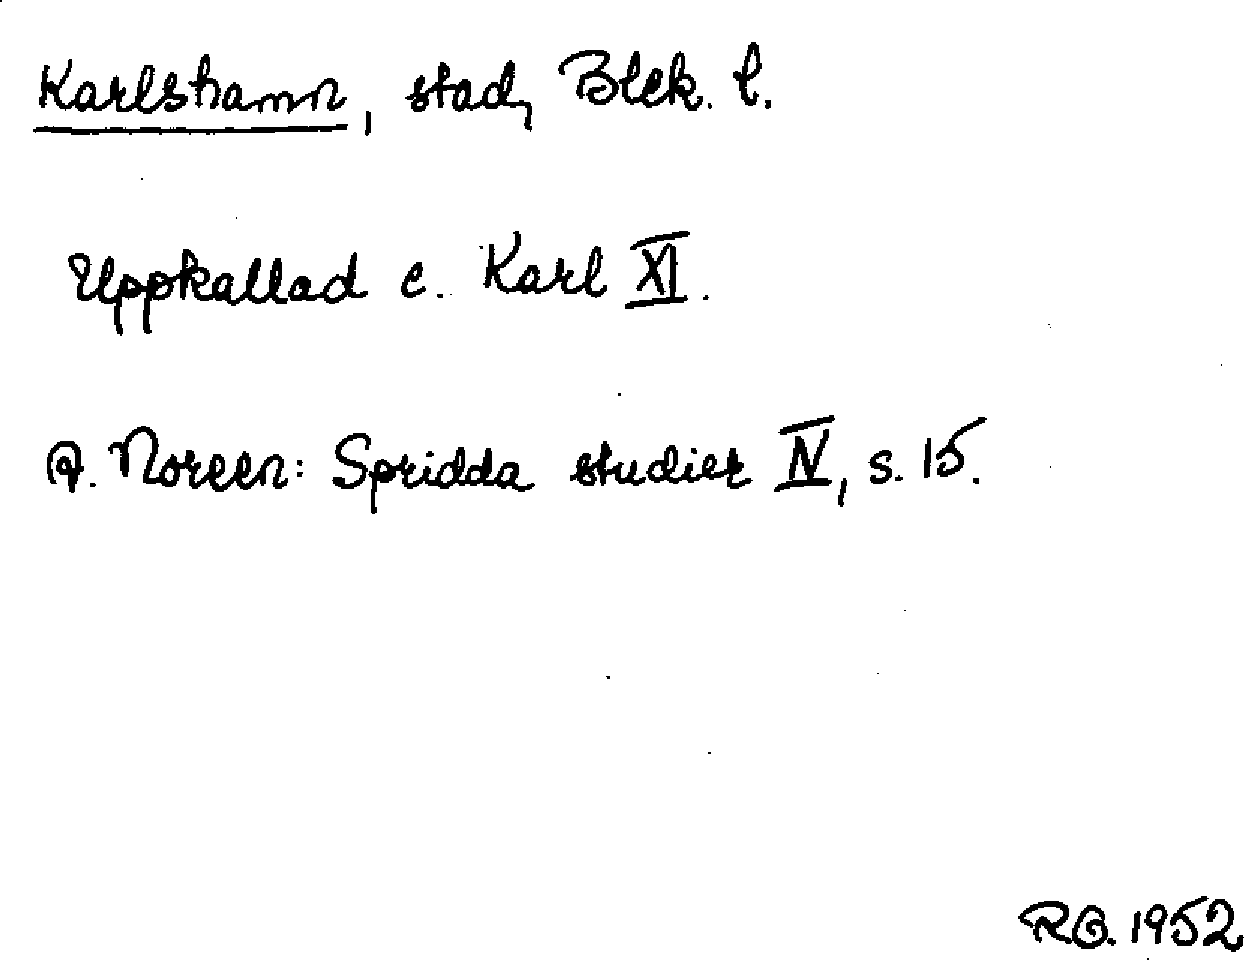 Karlshamn, stad, Blek. l.
Uppkallad e. Karl XI.
A. Noreen: Spridda studier IV, s. 15.
RG. 1952